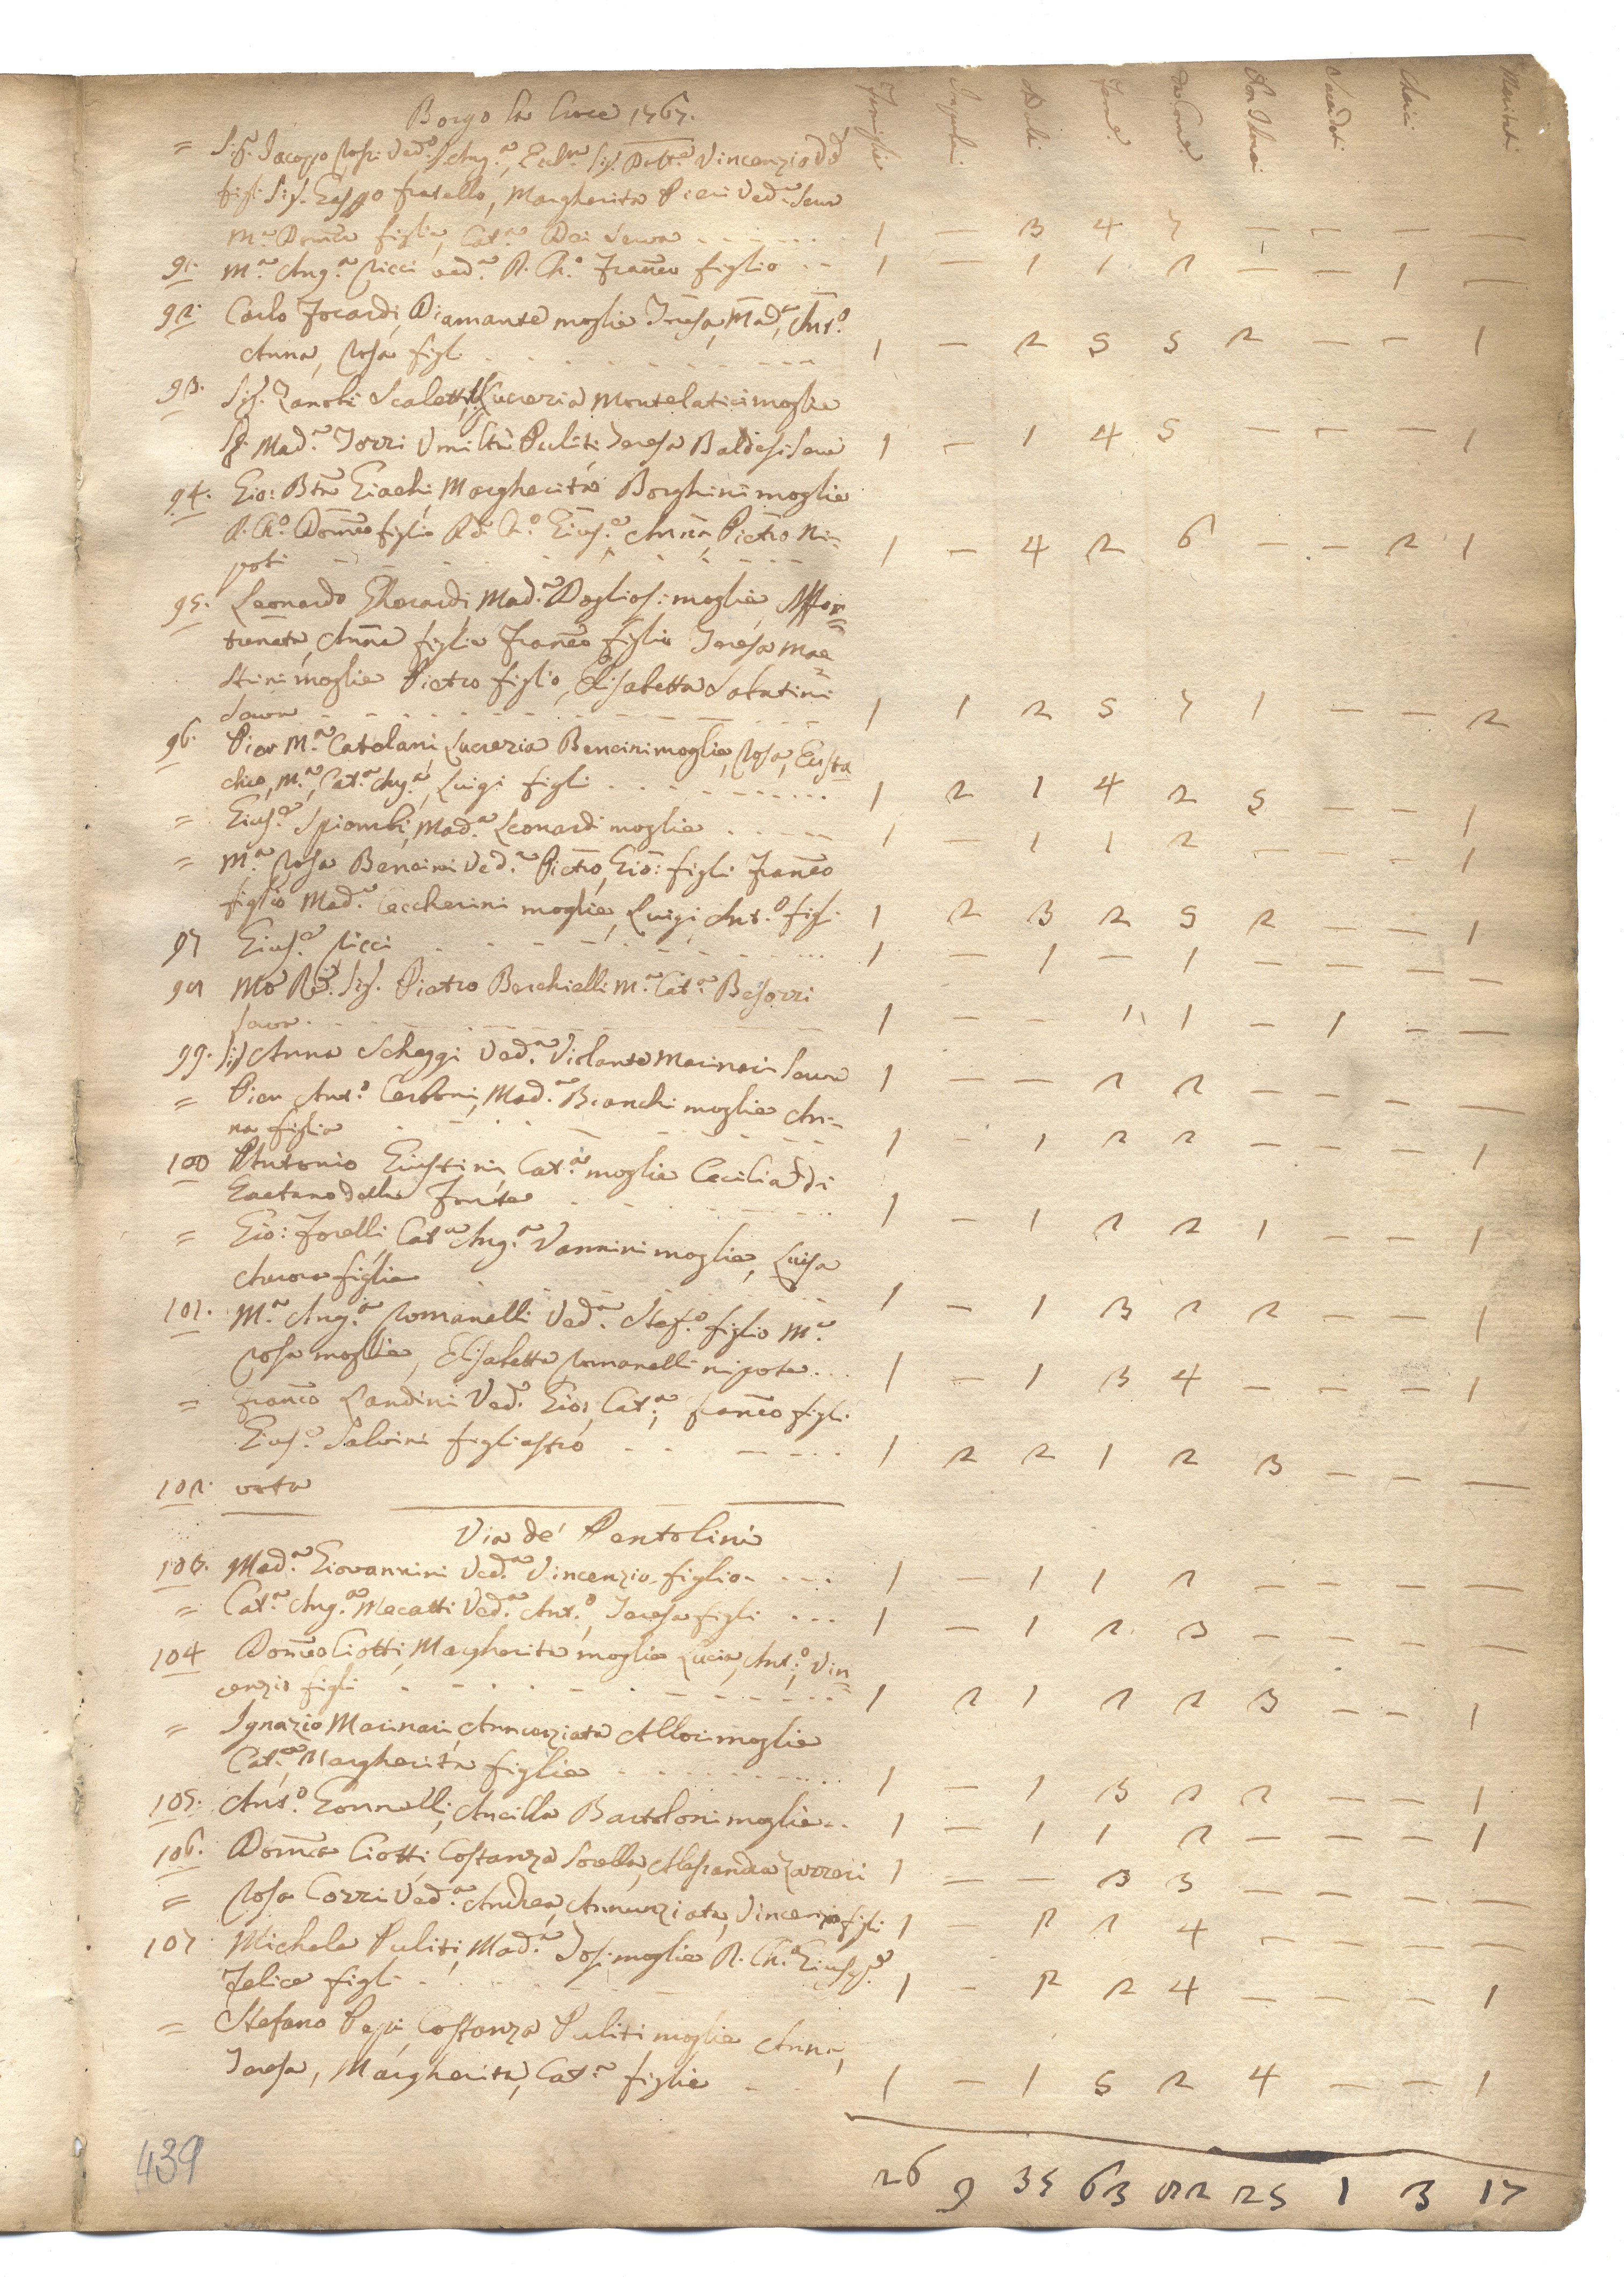 Borgo la Croce 1767.
Famiglie Impuberi Adulti Fem.e Da Com.e Non Com.i Sacerdoti Cherici Maritati
= Sig.r Iacopo Rossi Ved.o S. Ang.a, Vincenzio
figli Sig. fratello, Margherita Pieri Ved.a Serva
M.a Dom.ca figlia, Cat.a Dei Serva - - - 1 — 3 4 7 — — — —
91. M.a Ang.a Ricci ved.a R. Ch.o Fran.co figlio - - 1 — 1 1 2 — — 1 —
92. Carlo Focardi, Diamante moglie Teresa, Mad.a, Ant.o
Anna, Rosa figli - - - 1 — 2 5 5 2 — — 1
93. Sig. Zanobi Scaletti, Lucrezia Montelatici moglie
Mad.a Torri Umiltà Puliti Teresa Baldesi Serve 1 — 1 4 5 — — — 1
94. Gio: Bta Giachi, Margherita Borghini moglie
R. Ch.o Dom.co figlio R.do Ch.o Gius.e Anna, Pietro Ni=
poti - - - 1 — 4 2 6 — — 2 1
95. Leonardo Mad.a Dogliosi moglie, Affor=
tunata, Anna figlie Fran.co figlio Teresa Mae=
strini moglie Pietro figlio, Elisabetta Sabatini
Serva - - - 1 1 2 5 7 1 — — 2
96. Pier M.a Catelani, Lucrezia Bencini moglie, Rosa, Eusta
chio, M.a, Cat.a Ang.a, Luigi figli - - - 1 2 1 4 2 5 — — 1
= Gius.e Spiombi, Mad.a Leonardi moglie - - - 1 — 1 1 2 — — — 1
= M.a Rosa Bencini Ved.a Pietro, Gio: figli Fran.co
figlio Mad.a Ceccherini moglie, Luigi, Ant.o figli 1 2 3 2 5 2 — — 1
97 Gius.e Ricci - - - 1 — 1 — 1 — — — —
98 Mo Re: Sig. Pietro Berchielli M.a Cat.a
Serva - - - 1 — — 1 1 — 1 — —
99. Sig. Anna Scheggi Ved.a Violante Marinari Serva 1 — — 2 2 — — — —
= Pier Ant.o Carboni, Mad.a Bianchi moglie An=
na figlia - - - 1 — 1 2 2 — — — 1
100 Antonio Giustini, Cat.a moglie Cecilia di
Gaetano della Fonte - - - 1 — 1 2 2 1 — — 1
= Gio: Forelli Cat.a Ang.a Vannini moglie, Luisa
Aurora figlie - - - 1 — 1 3 2 2 — — 1
101. M.a Ang.a Romanelli Ved.a Stef.o figlio M.a
Rosa moglie, Elisabetta Romanelli nipote - - - 1 — 1 3 4 — — — 1
= Fran.co Landini Ved.o Gio:, Cat.a, Fran.co figli
Gius.e Salvini figliastro - - - 1 2 2 1 2 3 — — —
102. orto
Via de' Pentolini
103. Mad.a Giovannini Ved.a Vincenzio figlio - - - 1 — 1 1 2 — — — —
= Cat.a Ang.a Mecatti Ved.a Ant.o, Teresa figli - - - 1 — 1 2 3 — — — —
104 Dom.co Ciotti, Margherita moglie Lucia, Ant.o, Vin=
cenzio figli - - - 1 2 1 2 2 3 — — 1
= Ignazio Marinari, Annunziata Allori moglie
Cat.a, Margherita figlie - - - 1 — 1 3 2 2 — — 1
105. Ant.o Gonnelli, Ancilla Bartoloni moglie - - 1 — 1 1 2 — — — 1
106. Dom.ca Ciotti Costanza Sorella, Alessandra 1 — — 3 3 — — — —
= Rosa Corri Ved.a Andrea, Annunziata, Vincenzio figli 1 — 2 2 4 — — — —
107 Michele Puliti, Mad.a Tosi moglie R. Ch. Gius.e
Felice figli - - - 1 — 2 2 4 — — — 1
= Stefano Papi Costanza Puliti moglie Anna,
Teresa, Margherita, Cat.a figlie - - 1 — 1 5 2 4 — — 1
26 9 35 63 82 25 1 3 17
439